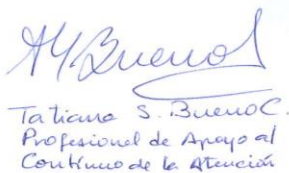 Tatiana S. Bueno C.
Profesional de Apoyo al
Continuo de la Atención